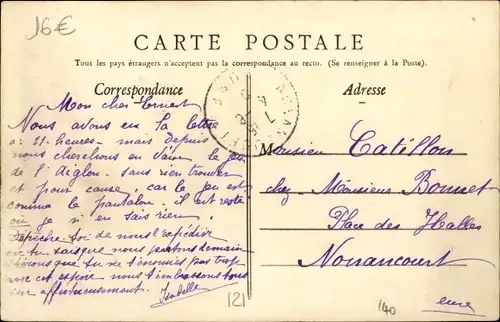 16€
CARTE POSTALE
Tous les pays étrangers n'acceptent pas la correspondance au recto. (Se renseigner à la Poste).
Correspondance
Adresse
Mon cher Ernest
Nous avons eu ta lettre
à 11 heures - mais depuis
nous cherchons en vain le jeu
de l'Aiglon. sans rien trouver
et pour cause, car le jeu est
comme le pantalon. il est resté
où je n'en sais rien.
Dépêche-toi de nous l'expédier
tu sais que nous partons demain
espérons que tu ne t'ennuies pas trop
cet espoir nous t'embrassons tous
affectueusement. Isabelle
Monsieur Catillon
chez Monsieur Bonnet
Place des Halles
Nonancourt
eure
121
140